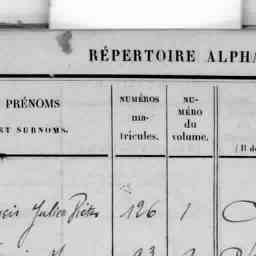 RÉPERTOIRE ALPHA
PRÉNOMS
ET SURNOMS.
NUMÉROS
ma-
tricules.
NU-
MÉRO
du
volume.
Julien 126 1